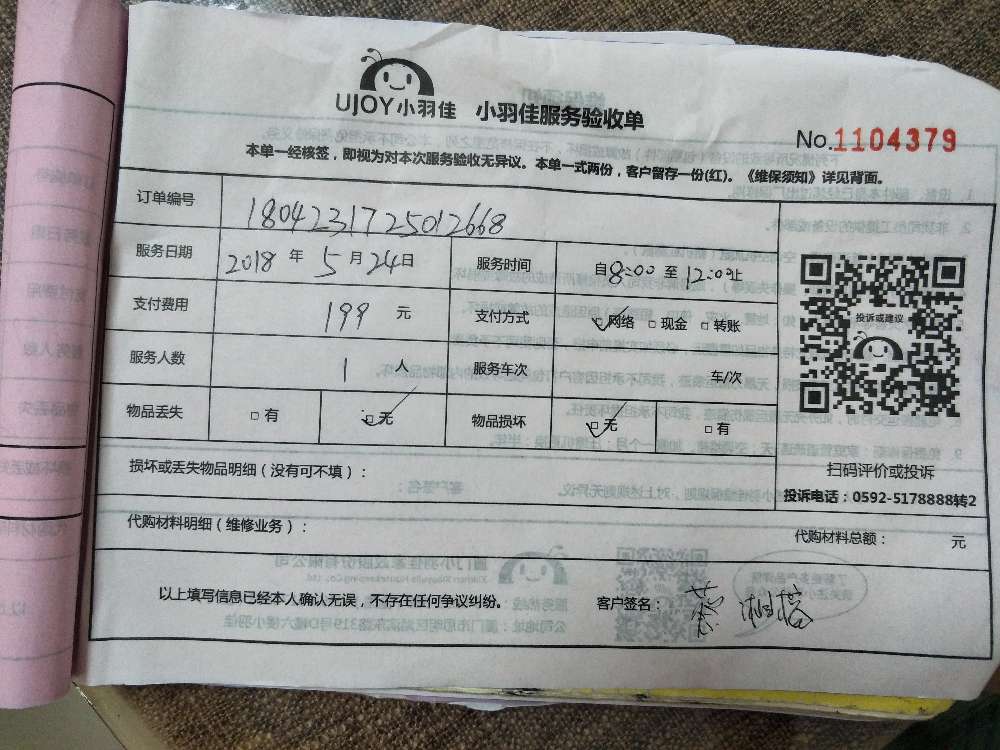 UJOY小羽佳 小羽佳服务验收单
No.1104379
本单一经核签，即视为对本次服务验收无异议。本单一式两份，客户留存一份(红)。《维保须知》详见背面。
订单编号 1804231725012668
服务日期 2018 年 5 月 24 日 服务时间 自 8:00 至 12:00 止
支付费用 199 元 支付方式 ☑网络 □现金 □转账
服务人数 1 人 服务车次 车/次
物品丢失 □有 ☑无 物品损坏 ☑无 □有
投诉或建议
扫码评价或投诉
投诉电话：0592-5178888转2
损坏或丢失物品明细（没有可不填）：
代购材料明细（维修业务）： 代购材料总额： 元
以上填写信息已经本人确认无误，不存在任何争议纠纷。 客户签名：